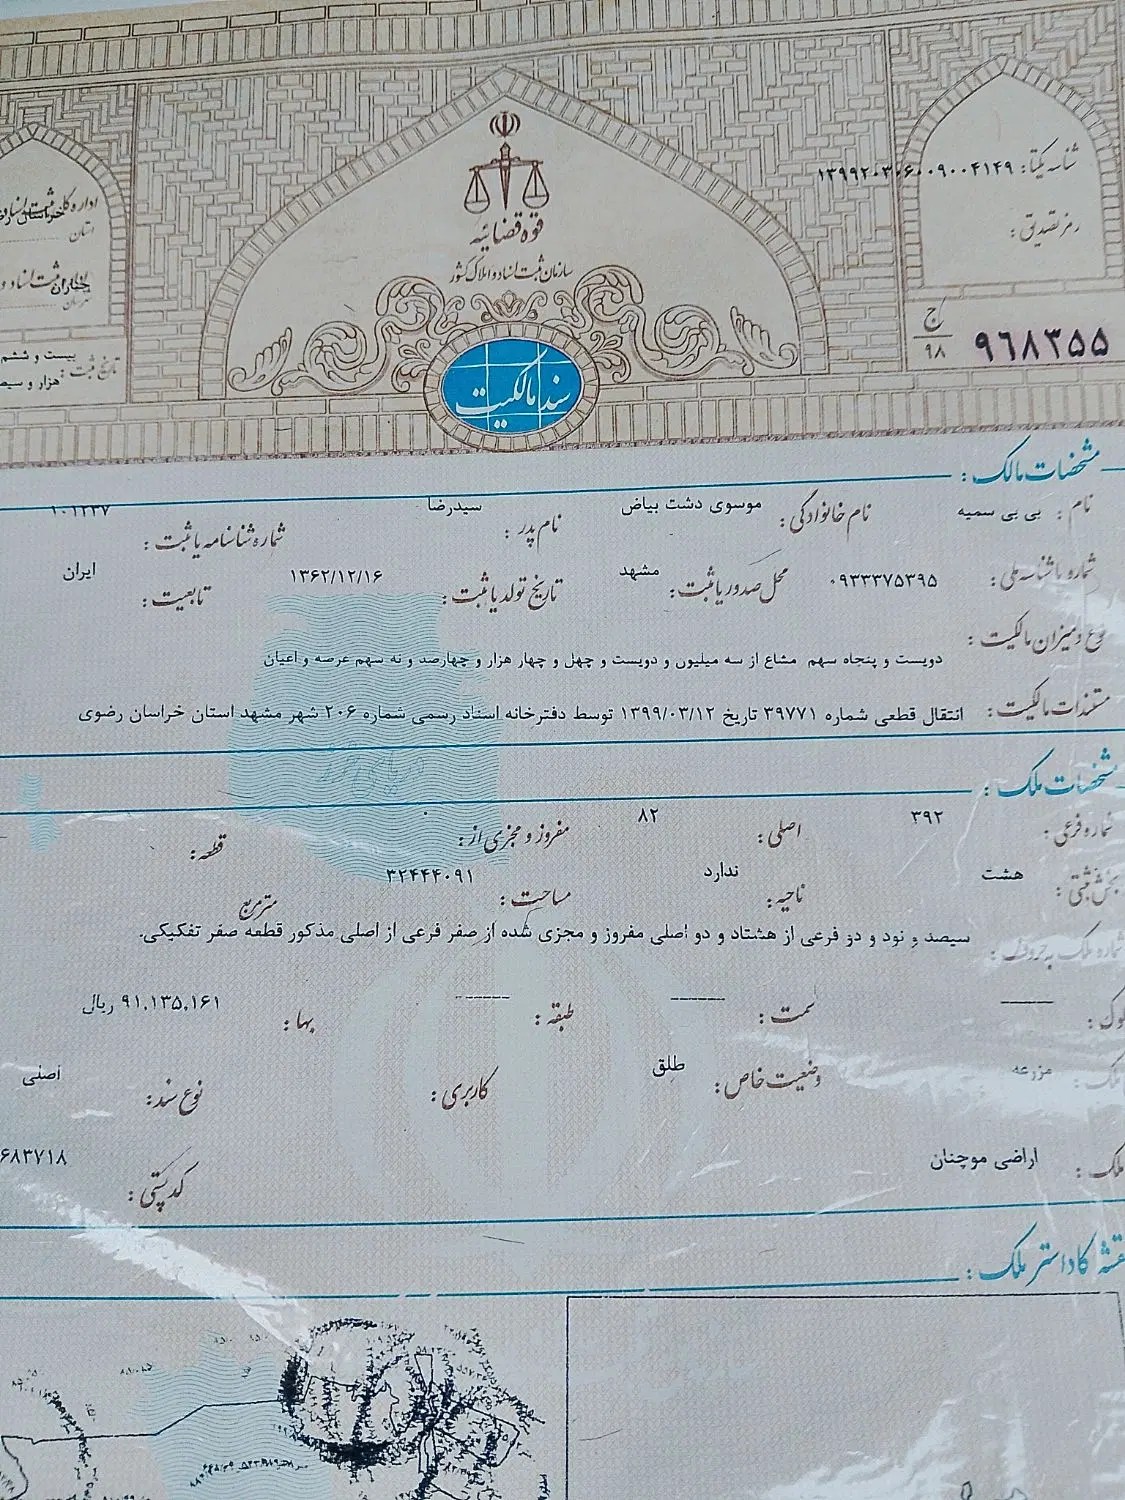 قوه قضائیه
سازمان ثبت اسناد و املاک کشور
سند مالکیت
شناسه یکتا: ۱۳۹۹۲۰۳۰۶۰۰۹۰۰۴۱۴۹
رمز تصدیق:
ج
۹۸
۹۶۸۳۵۵
اداره کل ثبت اسناد
خراسان
استان
ثبت اسناد و
چناران
شهرستان
تاریخ ثبت: بیست و ششم
هزار و سیصد
مشخصات مالک:
نام: بی بی سمیه نام خانوادگی: موسوی دشت بیاض نام پدر: سیدرضا شماره شناسنامه یا ثبت: ۱۰۱۲۳۷
شماره یا شناسه ملی: ۰۹۳۳۳۷۵۳۹۵ محل صدور یا ثبت: مشهد تاریخ تولد یا ثبت: ۱۳۶۲/۱۲/۱۶ تابعیت: ایران
نوع و میزان مالکیت: دویست و پنجاه سهم مشاع از سه میلیون و دویست و چهل و چهار هزار و چهارصد و نه سهم عرصه و اعیان
مستندات مالکیت: انتقال قطعی شماره ۳۹۷۷۱ تاریخ ۱۳۹۹/۰۳/۱۲ توسط دفترخانه اسناد رسمی شماره ۲۰۶ شهر مشهد استان خراسان رضوی
مشخصات ملک:
شماره فرعی: ۳۹۲ اصلی: ۸۲ مفروز و مجزی از: ۰ قطعه:
بخش ثبتی: هشت ناحیه: ندارد مساحت: ۳۲۴۴۴۰۹۱ مترمربع
شماره ملک به حروف: سیصد و نود و دو فرعی از هشتاد و دو اصلی مفروز و مجزی شده از صفر فرعی از اصلی مذکور قطعه صفر تفکیکی.
بلوک: ------ سمت: ------ طبقه: ------ بها: ۹۱,۱۳۵,۱۶۱ ریال
ملک: مزرعه وضعیت خاص: طلق کاربری: نوع سند: اصلی
ملک: اراضی موچنان کد پستی: ۶۸۳۷۱۸
نقشه کاداستر ملک: